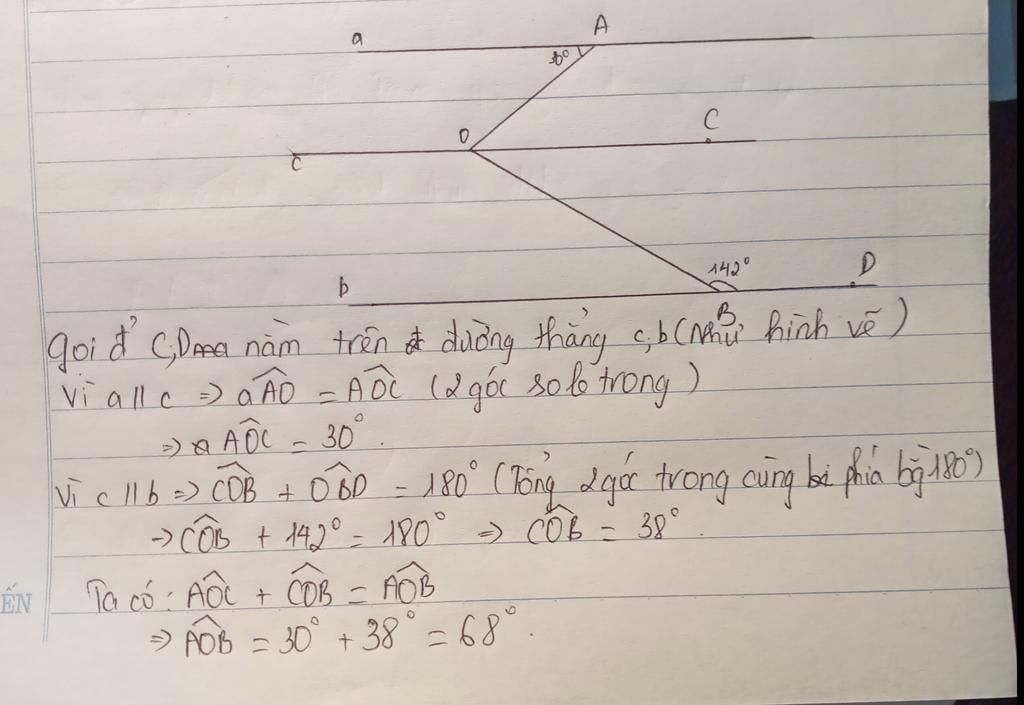 a
A
30°
O
C
c
142°
D
b
B
gọi đ' C;D nằm trên đường thẳng c;b (Như hình vẽ)
Vì a // c => aÂO = AÔC (2 góc so le trong)
=> AÔC = 30°.
Vì c // b => CÔB + OB̂D = 180° (Tổng 2 góc trong cùng phía bằng 180°)
=> CÔB + 142° = 180° => CÔB = 38°.
Ta có: AÔC + CÔB = AÔB
=> AÔB = 30° + 38° = 68°.
ẾN